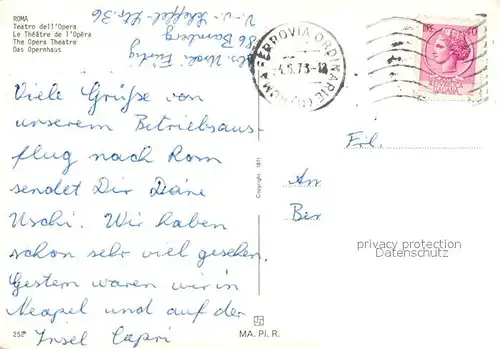 ROMA
Teatro dell'Opera
Le Théâtre de l'Opéra
The Opera Theatre
Das Opernhaus
86 Bamberg
FERROVIA ORDINARIE
.5.73-18
LIRE 40
Viele Grüße von
unserem Betriebsaus-
flug nach Rom
sendet Dir Deine
Uschi. Wir haben
schon sehr viel gesehen.
Gestern waren wir in
Neapel und auf der
Insel Capri
Frl.
An
Copyright, 1971
privacy protection
Datenschutz
252
MA. PI. R.